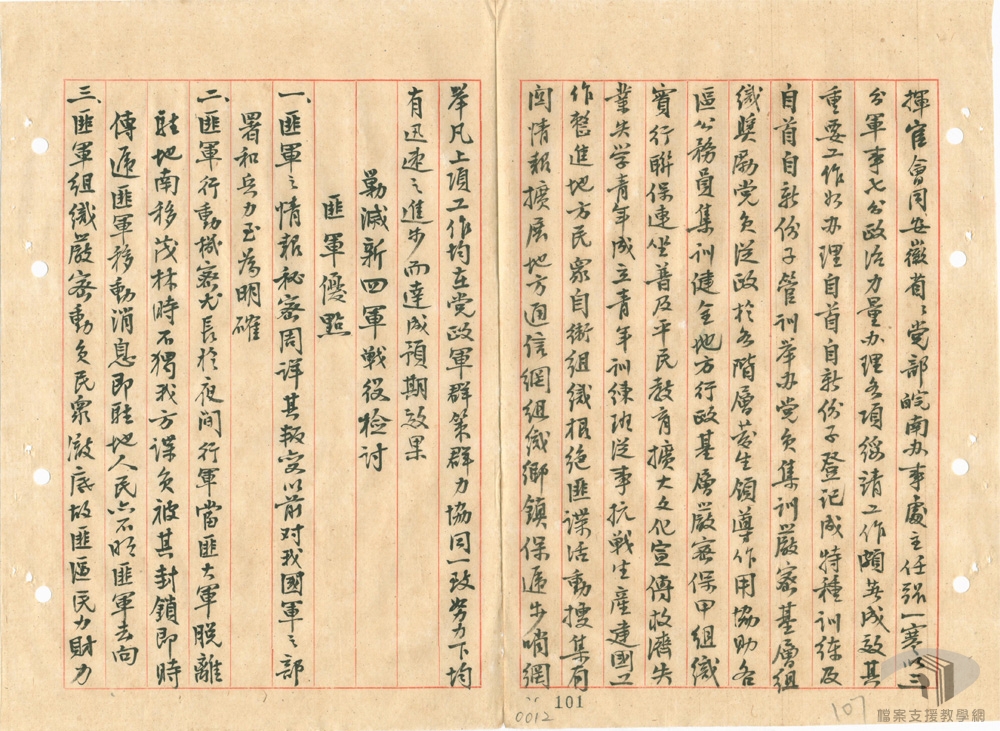 揮官會同安徽省々党部皖南办事處主任張一寒以三
分軍事七分政治力量办理各項綏靖工作頗著成效其
重要工作如办理自首自新份子登记成特種訓練及
自首自新份子管訓举办党負集訓嚴密基層組
織獎勵党負從政於各階層發生領導作用協助各
區公務負集訓健全地方行政基層嚴密保甲組織
實行聯保連坐普及平民敎育擴大文化宣傳救濟失
業失学青年成立青年訓練班從事抗戰生産建國工
作整進地方民衆自衛組織根絶匪諜活動搜集有
関情報擴展地方通信網組織鄉鎮保遞步哨網
举凡上項工作均在党政軍群策群力協同一致努力下均
有迅速之進步而達成預期效果
剿滅新四軍戰役检討
匪軍優點
一、匪軍之情報秘密周详其叛变以前对我國軍之部
署和兵力至為明確
二、匪軍行動機密尤長於夜间行軍當匪大軍脫離
駐地南移茂林時不獨我方諜負被其封鎖即時
傳遞匪軍移動消息即駐地人民亦不明匪軍去向
三、匪軍組織嚴密動負民衆澈底故匪區民力財力
101
0012
107
檔案支援教學網